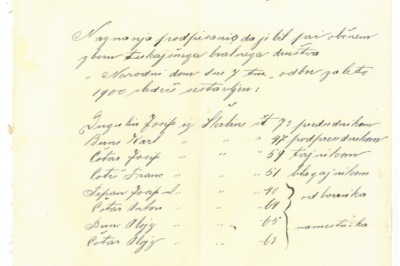 Naznanja podpisani da je bil pri občnem
zboru tukajšnega bralnega društva
„Narodni dom dne 7 tm., odbor za leto
1900 sledeče ustavljen:
Ingulin Josip iz Škrbine št 73 predsednikom
Bunc Karl " " " 47 podpredsednikom
Čotar Josip " " " 59 tajnikom
Čotar Franc " " " 51 blagajnikom
Stepan Josip " " " 48 odbornika
Čotar Anton " " " 64
Bunc Alojz " " " 65 namestnika
Čotar Alojz " " " 63